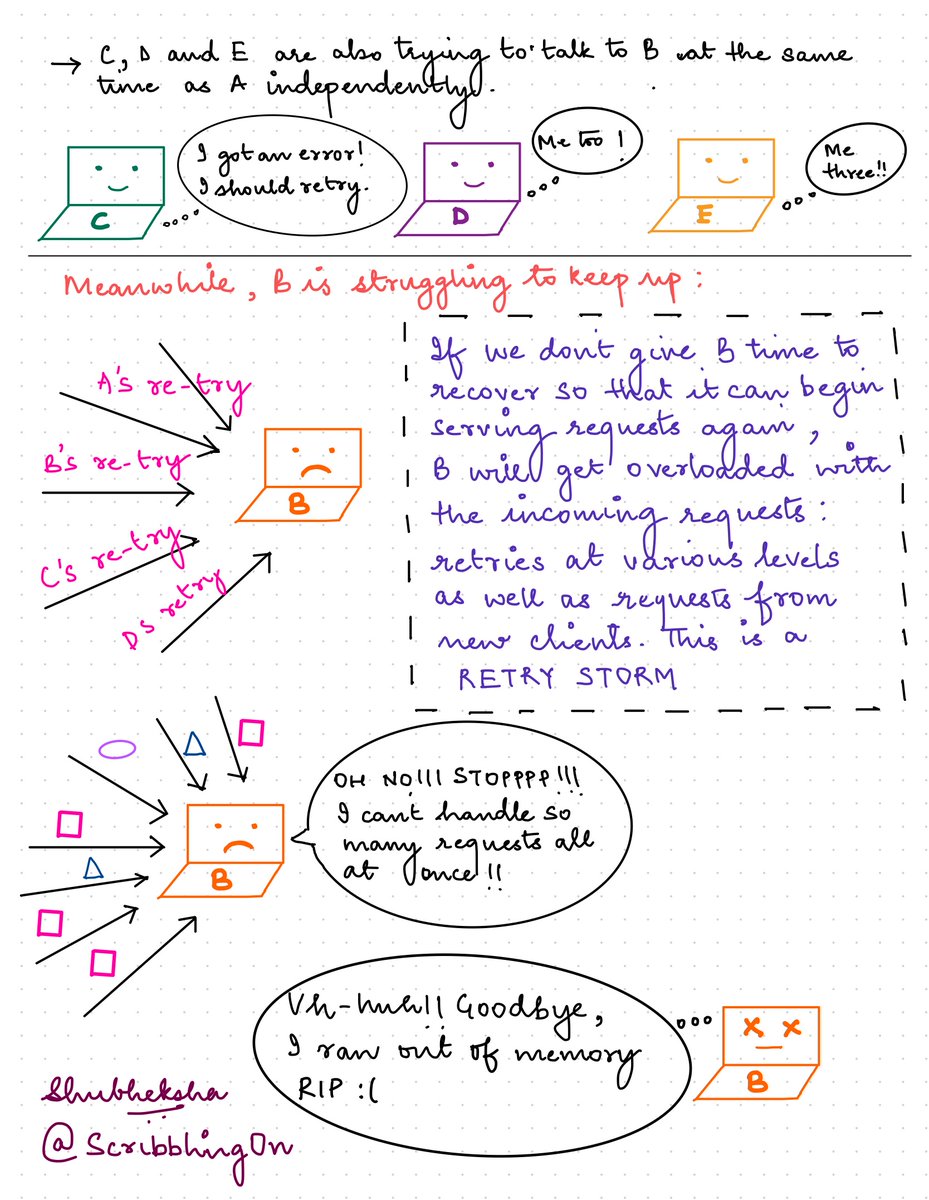 → C, D and E are also trying to talk to B at the same
time as A independently.
I got an error!
I should retry.
C
Me too !
D
Me
three!!
E
Meanwhile, B is struggling to keep up :
A's re-try
B's re-try
C's re-try
Ds retry
B
If we don't give B time to
recover so that it can begin
serving requests again,
B will get overloaded with
the incoming requests :
retries at various levels
as well as requests from
new clients. This is a
RETRY STORM
B
OH NO!!! STOPPPP!!!
I can't handle so
many requests all
at once!!
Uh-huh!! Goodbye,
I ran out of memory
RIP :(
B
Shubheksha
@ScribblingOn